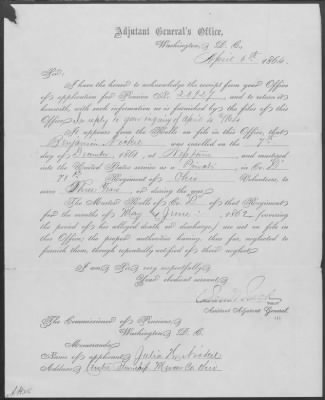 Adjutant General's Office,
Washington, D. C.,
April 6th, 1864
Sir:
I have the honor to acknowledge the receipt from your Office
of application for Pension No. and to return it
herewith, with such information as is furnished by the files of this
Office.
It appears from the Rolls on file in this Office, that
Benjamin was enrolled on the 7th
day of December, 1861, at and mustered
into the United States service at in Co. D
78th Regiment of Ohio Volunteers, to
serve Three Years or during the war.
The Muster Rolls of Co. D of that Regiment
for the months of May & June 1862 (covering
the period of his alleged death or discharge,) are not on file in
this Office, the proper authorities having, thus far, neglected to
furnish them, though repeatedly notified of their neglect.
I am, Sir, very respectfully,
Your obedient servant,
Assistant Adjutant General.
The Commissioner of Pensions,
Washington, D. C.
Memoranda:
Name of applicant, Julia
Address, Township Co Ohio